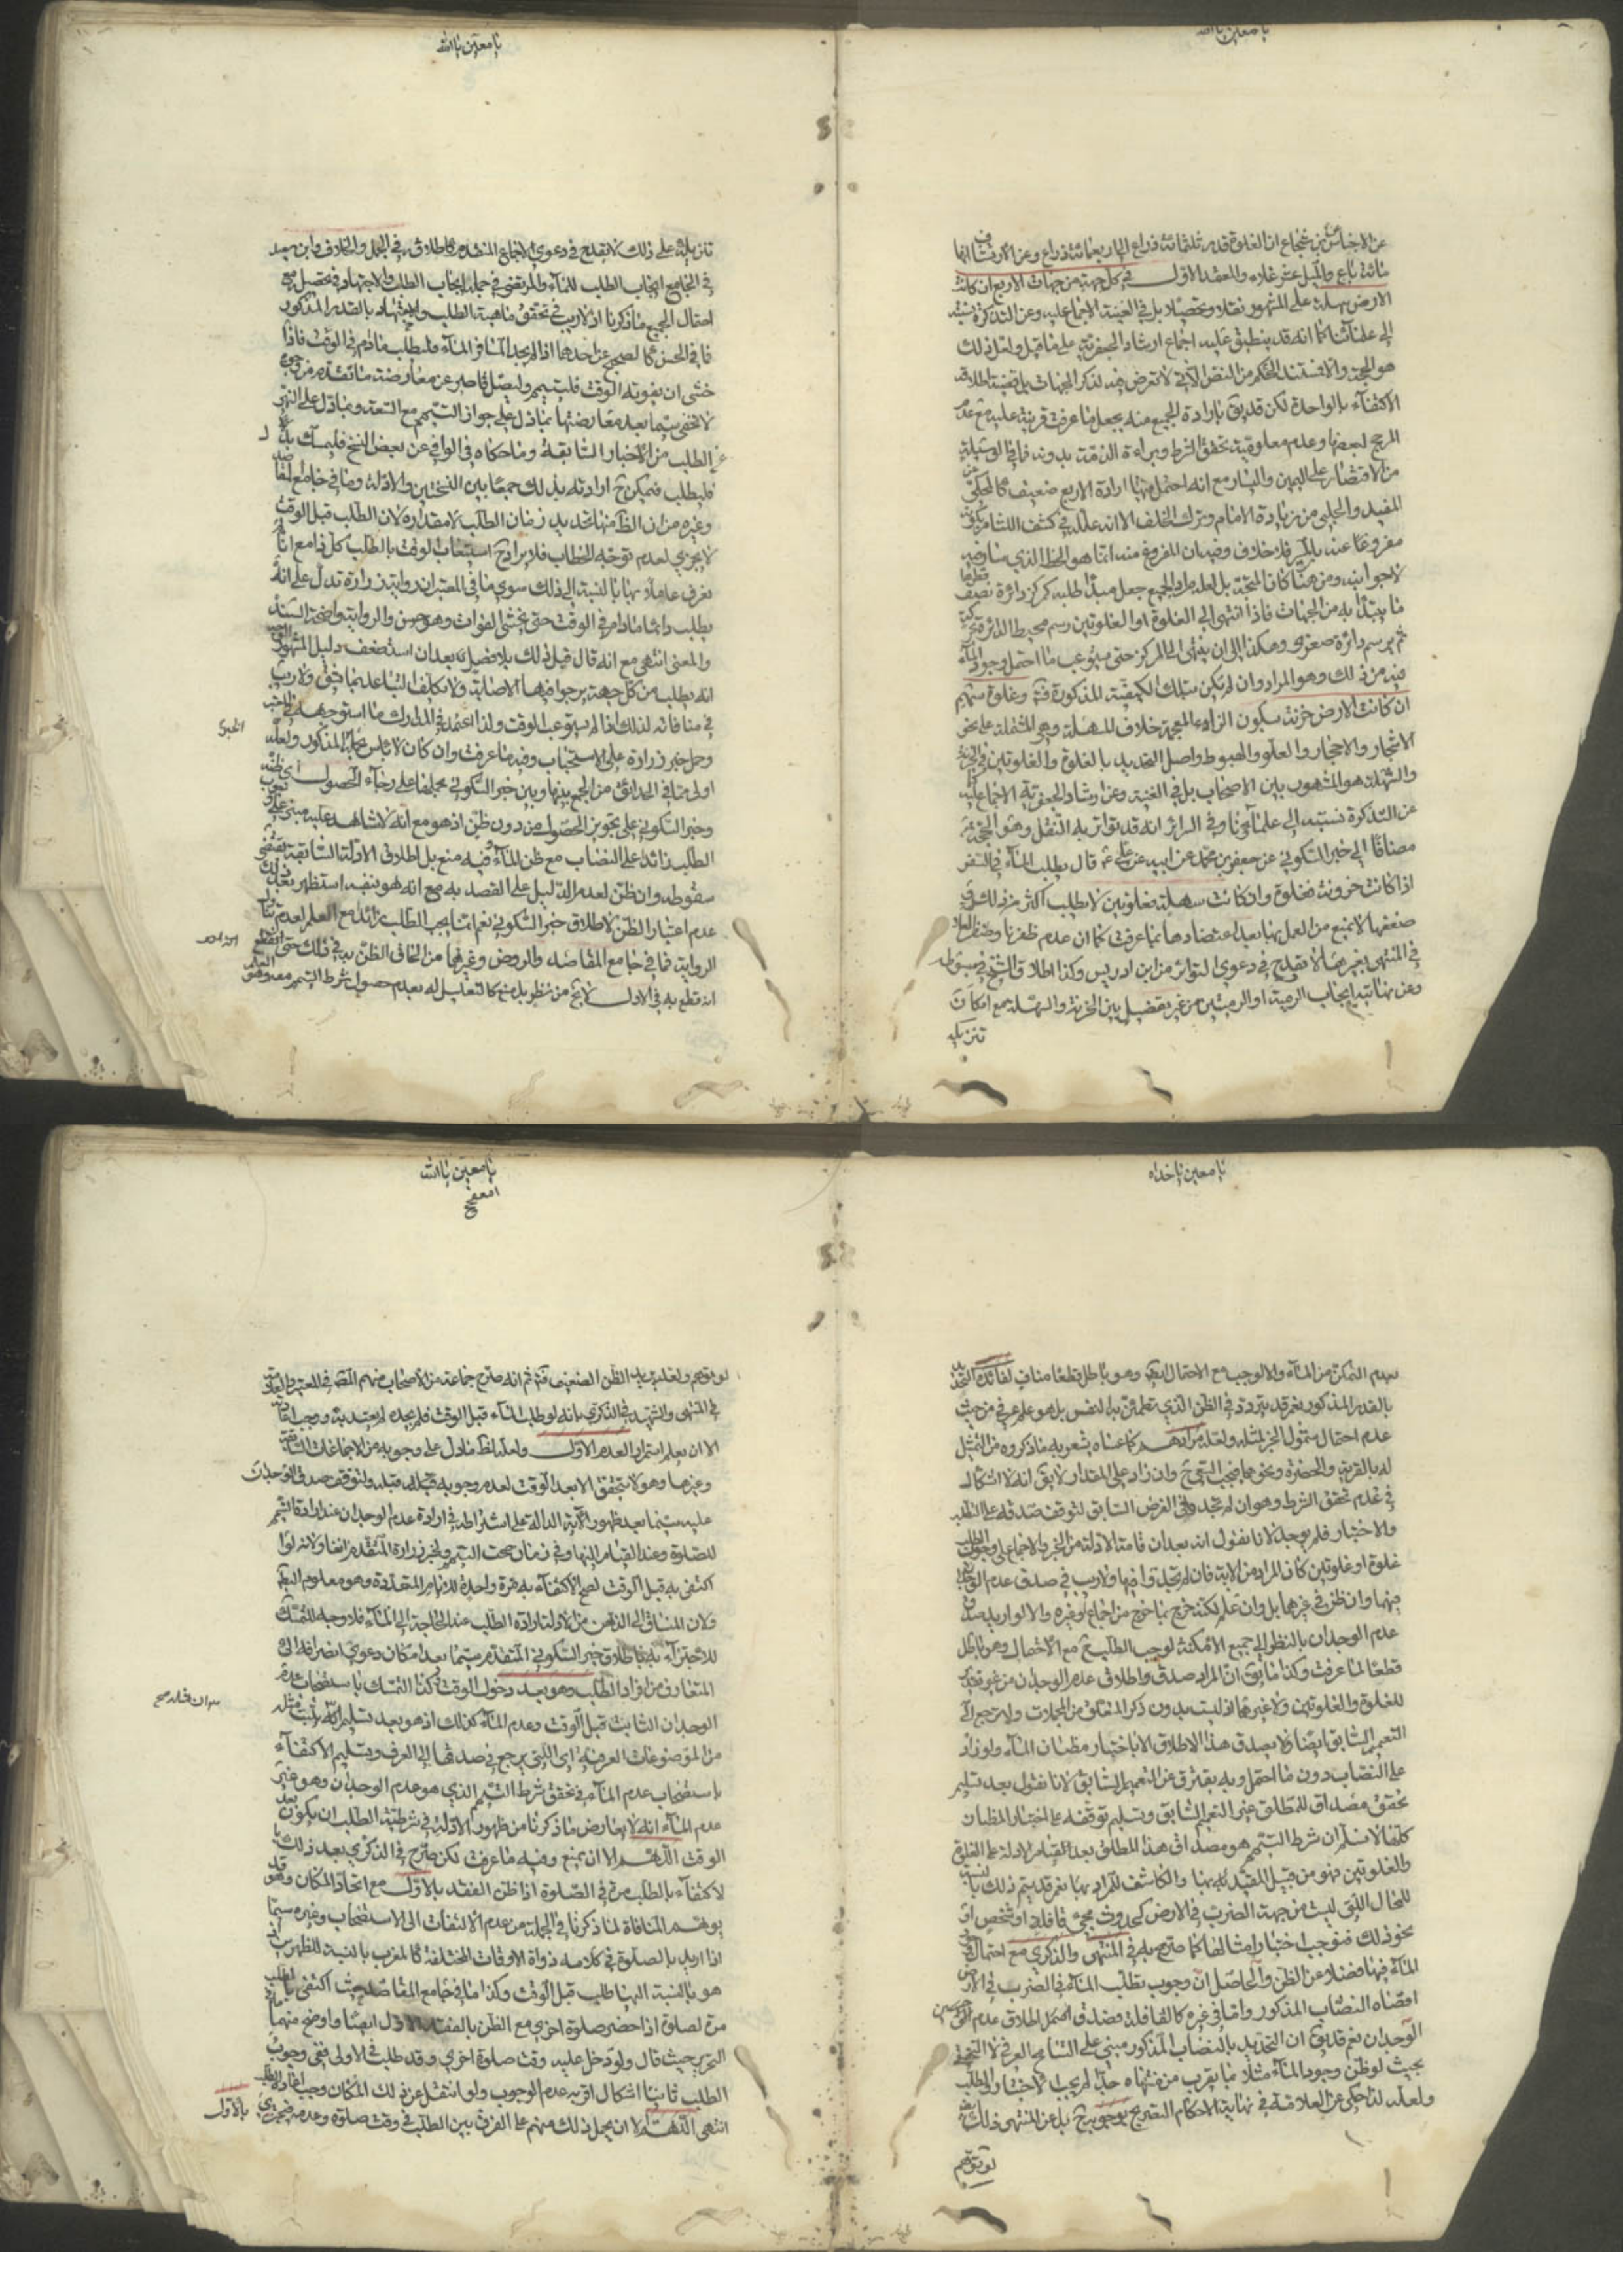 يا معين يا الله
عن الاجناس عن ابن شجاع ان الغلوة قدر ثلثمائة ذراع الى اربعمائة ذراع وعن الارتشاف انها
مائة باع والميل عشر غلاء والمعتمد الاول في كل جهة من جهات الاربع ان كانت
الارض سهلة على المشهور نقلا وتحصيلا بل في الغنية الاجماع عليه وعن التذكرة نسبته
الى علمائنا كما انه قد ينطبق عليه اجماع ارشاد الجعفرية على ما قيل ولعل ذلك
هو الحجة والا فمستند الحكم من النص الآتي لا تعرض فيه لذكر الجهات بل قضية اطلاقه
الاكتفاء بالواحدة لكن قد يق بارادة الجميع منه بجعل ما عرفت قرينة عليه مع عدم
المرجح لبعضها وعدم معلومية تحقق الشرط وبراءة الذمة بدونه فما في الوسيلة
من الاقتصار على اليمين واليسار مع انه احتمل منها ارادة الاربع ضعيف كالمحكي عن
المفيد والحلبي من زيادة الامام وترك الخلف الا انه علله في كشف اللثام بكونه
مفروغا عنه بالمسير فلا خلاف وفيه ان المفروغ منه انما هو الخط الذي سار فيه
لا جوانبه ومن هنا كان المتجه بل لعله مراد الجميع جعل مبدأ طلبه كمركز دائرة نصف قطرها
ما يبتدأ به من الجهات فاذا انتهى الى الغلوة او الغلوتين رسم محيط الدائرة بحركته
ثم يرسم دائرة صغرى وهكذا الى ان ينتهى الى المركز حتى يستوعب ما احتمل وجود الماء
فيه من ذلك وهو المراد وان لم يكن بتلك الكيفية المذكورة فت وغلوة سهم
ان كانت الارض حزنة بسكون الزاء المعجمة خلاف السهلة وهي المشتملة على نحو
الاشجار والاحجار والعلو والهبوط واصل التحديد بالغلوة والغلوتين في الحزنة
والسهلة هو المشهور بين الاصحاب بل في الغنية وعن ارشاد الجعفرية الاجماع عليه كما
عن التذكرة نسبته الى علمائنا وفي السرائر انه قد تواتر به النقل وهو الحجة
مضافا الى خبر السكوني عن جعفر بن محمد عن ابيه عن علي ع قال يطلب الماء في السفر
اذا كانت حزونة فغلوة وان كانت سهلة فغلوتين لا يطلب اكثر من ذلك وفي
ضعفها لا يمنع من العمل بها بعد اعتضادها بما عرفت كما ان عدم ظفرنا وظفر العلامة
في المنتهى بغيرها لا يقدح في دعوى التواتر من ابن ادريس وكذا اطلاق الشيخ في مبسوطه
وعن نهايته ايجاب الرمية او الرميتين من غير تفصيل بين الحزنة والسهلة مع امكان
تنزيله
يا معين يا الله
تنزيله على ذلك لا يقدح في دعوى الاجماع المتقدم كاطلاقه في الجمل والخلاف وابن سعيد
في الجامع ايجاب الطلب للماء والمرتضى في جمله ايجاب الطلب والاجتهاد في تحصيله مع
احتمال الجميع ما ذكرنا اذ لا ريب في تحقق ماهية الطلب والاجتهاد بالقدر المذكور
فما في الحسن كالصحيح عن احدهما اذا لم يجد المسافر الماء فليطلب مادام في الوقت فاذا
خشى ان يفوته الوقت فليتيمم وليصل قاصر عن معارضة ما تقدم من وجوه
لا تخفى سيما بعد معارضتها بما دل على جواز التيمم مع السعة وبما دل على النهي
عن الطلب من الاخبار السابقة وما حكاه في الوافي عن بعض النسخ فليمسك بدل
فليطلب فيمكن ح ارادته بذلك جمعا بين النسختين والادلة وما في جامع المقاصد
وغيره من ان الظ منها تحديد زمان الطلب لا مقداره لان الطلب قبل الوقت
لا يجزي لعدم توجه الخطاب فلا يراد ح استيعاب الوقت بالطلب كل ذا مع انا لم
نعرف عاملا بها بالنسبة الى ذلك سوى ما في المعتبر ان رواية زرارة تدل على انه
يطلب دائما مادام في الوقت حتى يخشى الفوات وهو حسن والرواية واضحة السند
والمعنى انتهى مع انه قال قبل ذلك بلا فصل بعد ان استضعف دليل المشهور
انه يطلب من كل جهة يرجو فيها الاصابة ولا يكلف التباعد بما يشق ولا ريب
في منافاته لذلك اذا لم يستوعب الوقت ولذا اعتمد في المدارك ما استوجهه في المعتبر
وحمل خبر زرارة على الاستحباب وفيه ما عرفت وان كان لا باس بحمله المذكور ولعله
اولى مما في الحدائق من الجمع بينها وبين خبر السكوني بحملها على رجاء الحصول اي ظنه
وخبر السكوني على تجويز الحصول من دون ظن اذ هو مع انه لا شاهد عليه مبني على وجوب
الطلب زائدا على النصاب مع ظن الماء وفيه منع بل اطلاق الادلة السابقة يقتضي
سقوطه وان ظن لعدم الدليل على القصد به مع انه هو بنفسه استظهر بعد ذلك
عدم اعتبار الظن لاطلاق خبر السكوني نعم انما يجب الطلب زائدا مع العلم لعدم تناول
الرواية فما في جامع المقاصد والروض وغيرهما من الحاق الظن به في ذلك حتى انقطع
انه قطع به في الاول لا يخ من نظر بل منع كالتعليل له بعدم حصول شرط التيمم معه وهو العلم
الخبري
يا معين يا خداه
بعدم التمكن من الماء والا لوجب مع الاحتمال ايضا وهو باطل قطعا مناف لفائدة التحديد
بالقدر المذكور نعم قد يتردد في الظن الذي تطمئن به النفس بل هو علم عرفي من حيث
عدم احتمال شمول الخبر لمثله ولعله مرادهم كما عساه يشعر به ما ذكروه من التمثيل
له بالقرية والخضرة ونحوهما فيجب السعي ح وان زاد على المقدار لا يق انه لا اشكال
في عدم تحقق الشرط وهو ان لم تجدوا في الفرض السابق لتوقف صدقه على الطلب
والاختبار فلم يوجد لانا نقول انه بعد ان قامت الادلة من الخبر والاجماع على وجوب الطلب
غلوة او غلوتين كان المراد من الآية فان لم تجدوا فيها ولا ريب في صدق عدم الوجدان
فيها وان ظن في غيرها بل وان علم لكنه خرج بما خرج من اجماع وغيره والا لو اريد صدق
عدم الوجدان بالنظر الى جميع الامكنة لوجب الطلب ح مع الاحتمال وهو باطل
قطعا لما عرفت وكذا ما يق ان المراد صدق واطلاق عدم الوجدان من غير تقييد
للغلوة والغلوتين ولا غيرهما اذ ليست بدون ذكر المتعلق من المجملات ولا يرجع الى
التعميم السابق ايضا ولا يصدق هذا الاطلاق الا باختبار مظان الماء ولو زاد
على النصاب دون ما احتمل وبه يفترق عن التعميم السابق لانا نقول بعد تسليم
تحقق مصداق للمطلق غير التعميم السابق وتسليم توقفه على اختبار المظان
كلها لا نسلم ان شرط التيمم هو مصداق هذا المطلق بعد القيام الادلة على الغلوة
والغلوتين فهو من قبيل المقيد له بها والكاشف للمراد بها نعم قد يتم ذلك بالنسبة
للمحال التي ليست من جهة الضرب في الارض كحدوث مجئ قافلة او شخص او
نحو ذلك فتوجب اختبار امثالها كما صرح به في المنتهى والذكرى مع احتمال
الماء فيها فضلا عن الظن والحاصل ان وجوب تطلب الماء في الضرب في الارض
اقصاه النصاب المذكور واما في غيره كالقافلة فصدق
الوجدان نعم قد يق ان التحديد بالنصاب المذكور مبني على التسامح العرفي لا التحقيقي
بحيث لو ظن وجود الماء مثلا بما يقرب من منتهاه جدا لم يجب الاختبار والطلب
ولعله لذا حكي عن العلامة في نهاية الاحكام التصريح بوجوبه ح بل عن المنتهى ذلك ايضا
لو توهم
يا معين يا الله
لو توهم ولعله يريد الظن الضعيف فت ثم انه صرح جماعة من الاصحاب منهم المصنف في المعتبر والعلامة
في المنتهى والشهيد في الذكرى بانه لو طلب الماء قبل الوقت فلم يجده لم يعتد به ووجب اعادته
الا ان يعلم استمرار العدم الاول ولعله لظ ما دل على وجوبه من الاجماعات السابقة
وغيرها وهو لا يتحقق الا بعد الوقت لعدم وجوبه قبله ولتوقف صدق الوجدان
عليه سيما بعد ظهور الآية الدالة على اشتراطه في ارادة عدم الوجدان عند ارادة التيمم
للصلوة وعند القيام اليها وفي زمان صحت التيمم ولخبر زرارة المتقدم آنفا ولانه لو
اكتفى به قبل الوقت لصح الاكتفاء به مرة واحدة للايام المتعددة وهو معلوم البطلان
ولان المنساق الى الذهن من الادلة ارادة الطلب عند الحاجة الى الماء فلا وجه للتمسك
للاجتزاء به باطلاق خبر السكوني المتقدم سيما بعد امكان دعوى انصرافه الى
المتعارف من افراد الطلب وهو بعد دخول الوقت وكذا التمسك باستصحاب عدم
الوجدان الثابت قبل الوقت وعدم الماء كذلك اذ هو بعد تسليم
من الموضوعات العرفية اي التي يرجع في صدقها الى العرف وتسليم الاكتفاء
باستصحاب عدم الماء في تحقق شرط التيمم الذي هو عدم الوجدان وهو غير
عدم الماء انه لا يعارض ما ذكرنا من ظهور الادلة في شرطية الطلب ان يكون بعد
الوقت اللهم الا ان يمنع وفيه ما عرفت لكن صرح في الذكرى بعد ذلك
لاكتفاء بالطلب مرة في الصلوة اذا ظن الفقد بالاول مع اتحاد المكان وقد
يوهم المنافاة لما ذكرنا في الجملة من عدم الالتفات الى الاستصحاب وغيره سيما
اذا اريد بالصلوة في كلامه ذوات الاوقات المختلفة كالمغرب بالنسبة للظهرين
هو بالنسبة اليها طلب قبل الوقت وكذا ما في جامع المقاصد حيث اكتفى بالطلب
مرة لصلوة اذا حضر صلوة اخرى مع الظن بالفقد الاول ايضا واوضح منهما ما في
التحرير حيث قال ولو دخل عليه وقت صلوة اخرى وقد طلب في الاولى ففي وجوب
الطلب ثانيا اشكال اقربه عدم الوجوب ولو انتقل عن ذلك المكان وجب اعادة الطلب
انتهى اللهم الا ان يحمل ذلك منهم على الفرق بين الطلب في وقت صلوة وعدمه فيجتزي بالاول